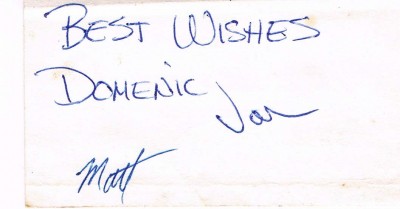 BEST WISHES
DOMENIC
Matt